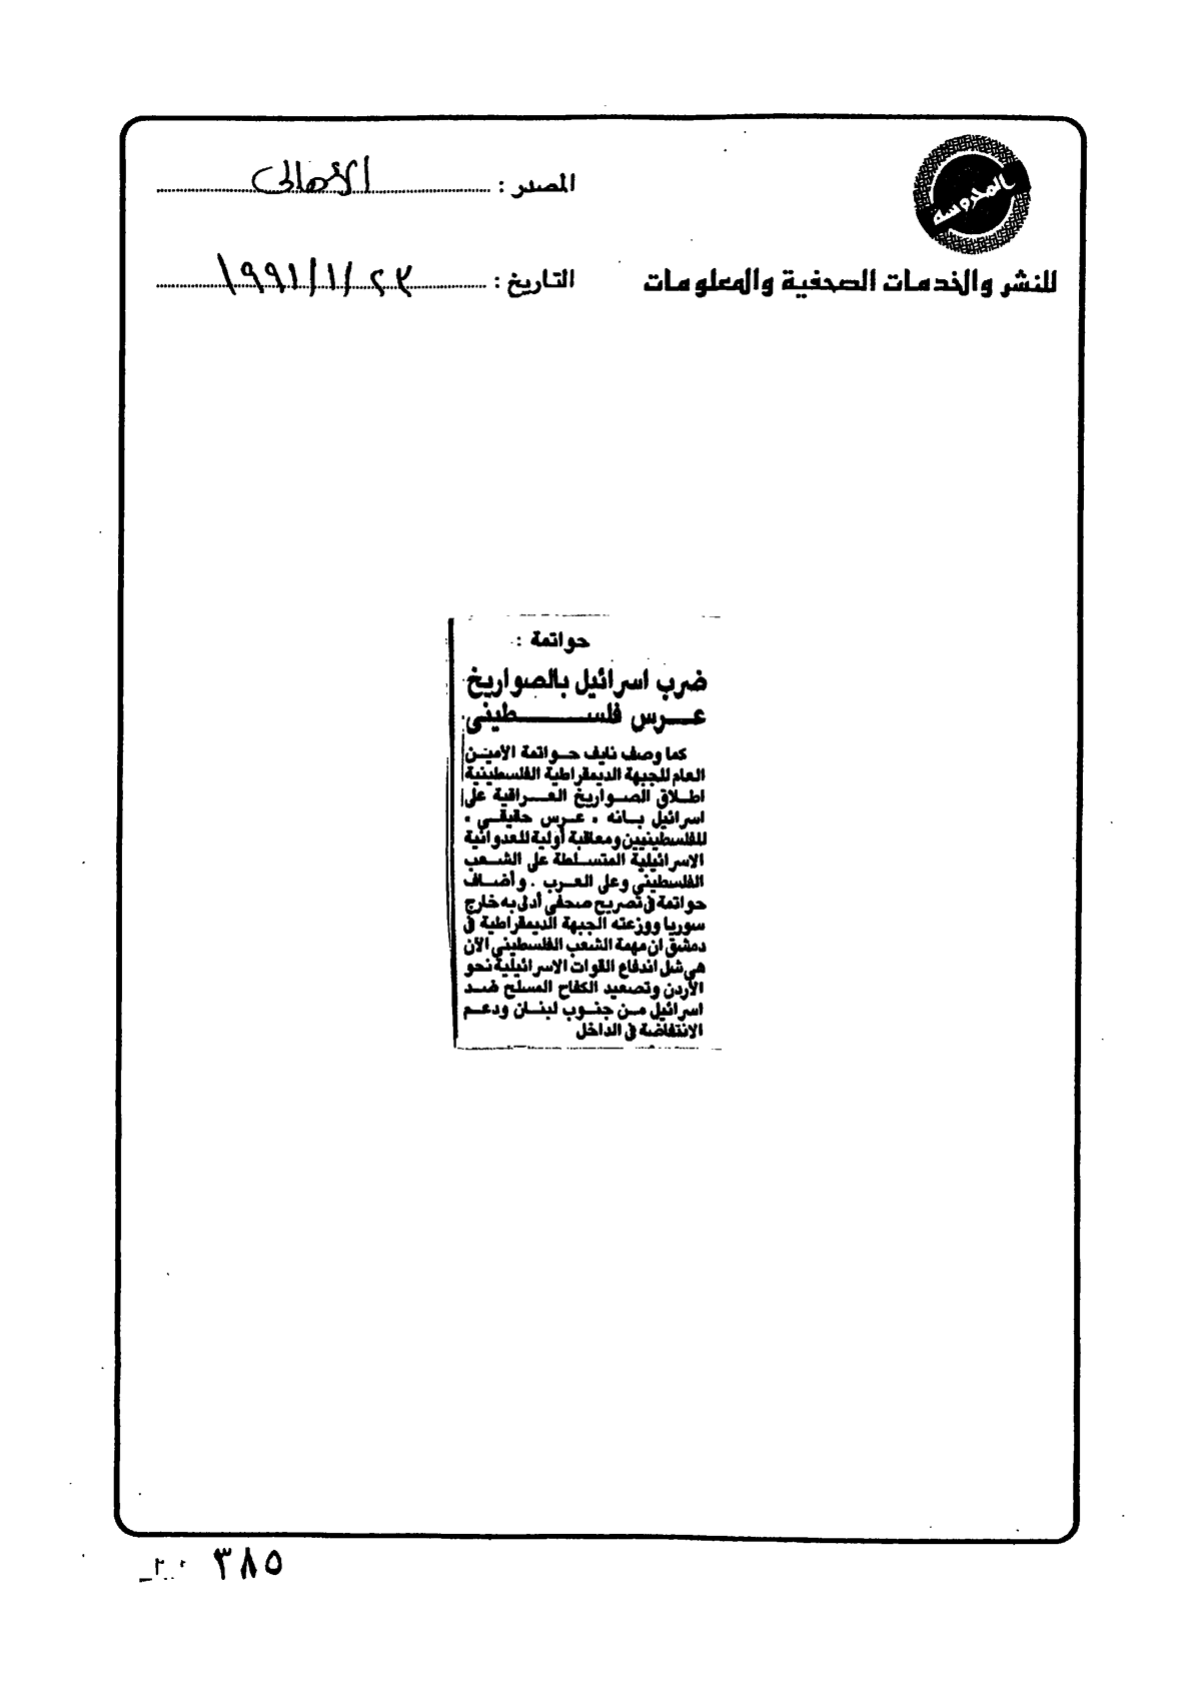 المحروسة
للنشر والخدمات الصحفية والمعلومات
المصدر : الأهالى
التاريخ : ٢٣/١/١٩٩١
حواتمة :
ضرب اسرائيل بالصواريخ
عرس فلسطينى
كما وصف نايف حواتمة الأمين
العام للجبهة الديمقراطية الفلسطينية
اطلاق الصواريخ العراقية على
اسرائيل بانه « عرس حقيقى »
للفلسطينيين ومعاقبة أولية للعدوانية
الاسرائيلية المتسلطة على الشعب
الفلسطيني وعلى العرب . وأضاف
حواتمة فى تصريح صحفى أدلى به خارج
سوريا ووزعته الجبهة الديمقراطية فى
دمشق ان مهمة الشعب الفلسطيني الآن
هى شل اندفاع القوات الاسرائيلية نحو
الأردن وتصعيد الكفاح المسلح ضد
اسرائيل من جنوب لبنان ودعم
الانتفاضة فى الداخل
٣٨٥